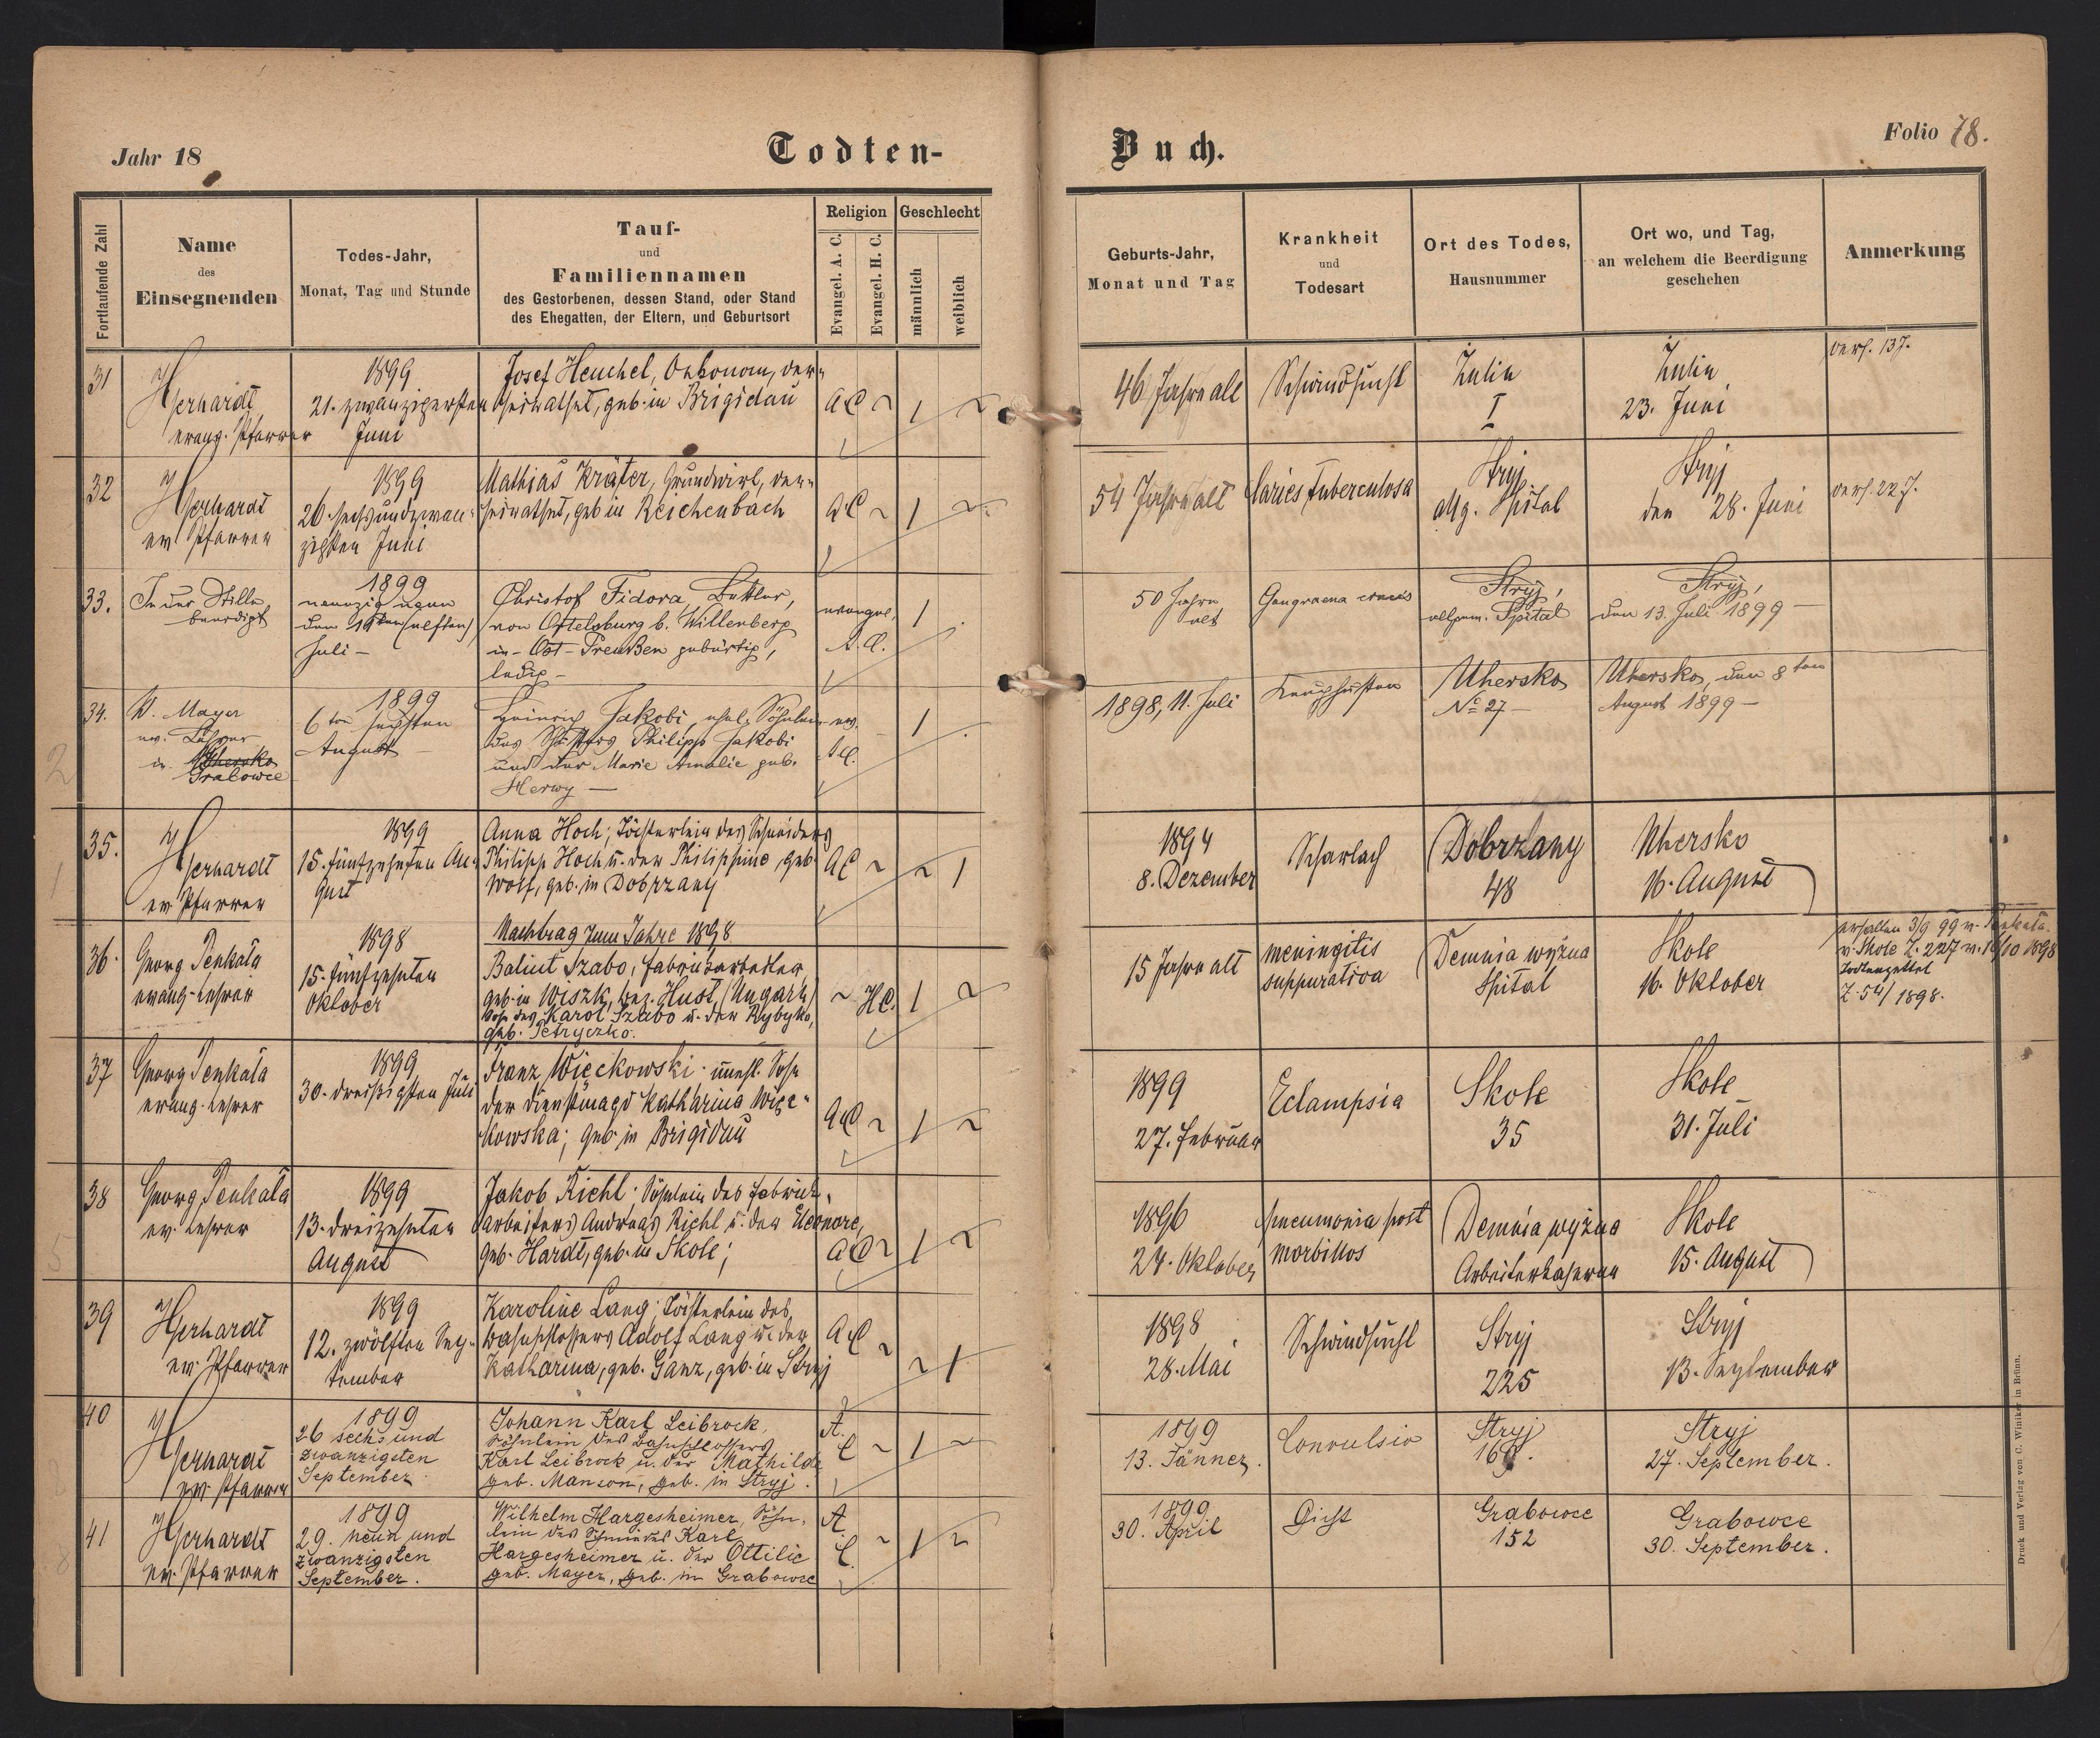 Jahr 18
Todten-
Buch.
Folio 78.
Fortlaufende Zahl
Name
des
Einsegnenden
Todes-Jahr,
Monat, Tag und Stunde
Tauf-
und
Familiennamen
des Gestorbenen, dessen Stand, oder Stand
des Ehegatten, der Eltern, und Geburtsort
Religion
Evangel. A. C.
Evangel. H. C.
Geschlecht
männlich
weiblich
Geburts-Jahr,
Monat und Tag
Krankheit
und
Todesart
Ort des Todes,
Hausnummer
Ort wo, und Tag,
an welchem die Beerdigung
geschehen
Anmerkung
31
Gerhardt
evang. Pfarrer
1899
21. zwanzigersten
Juni
Josef Heuchel, Oekonom, ver-
heirathet, geb. in Brigidau
AC ~ 1 ~
46 Jahre alt
Schwindsucht
Zulin
I
Zulin
23. Juni
verh. 137.
32
Gerhardt
ev. Pfarrer
1899
26. sechsundzwan-
zigsten Juni
Mathias Kräter, Grundwirt, ver-
heirathet, geb in Reichenbach
AC ~ 1 ~
54 Jahre alt
Caries tuberculosa
Stryj
allg. Spital
Stryj
den 28. Juni
verh. 227.
33.
In der Stille
beerdigt
1899
neunzig neun
den 11ten (elften)
Juli –
Christof Fidora, Bettler,
von Ortelsburg b. Willenberg
in Ost-Preußen gebürtig,
ledig –
evangel.
A. C.
1
50 Jahre
alt
Gangraena cruris
Stryj,
allgem. Spital
Stryj,
den 13. Juli 1899 –
34.
W. Mayer
ev. Lehrer
in Uhersko
Grabowce
1899
6ten sechsten
August –
Heinrich Jakobi, ehel. Söhnlein
des Philipp Jakobi
und der Marie Amalie geb.
Herwy –
ev.
AC.
1
1898, 11. Juli
Keuchhusten
Uhersko
No 27 –
Uhersko, den 8ten
August 1899 –
35.
Gerhardt
ev Pfarrer
1899
15. fünfzehnten Au-
gust
Anna Hoch; Töchterlein des Schneiders
Philipp Hoch u. der Philippine, geb.
Wolf, geb. in Dobrzany
AC ~ ~ 1
1894
8. Dezember
Scharlach
Dobrzany
48
Uhersko
16. August
36.
Georg Penkala
evang. Lehrer
1898
15. fünfzehnten
Oktober
Nachtrag zum Jahre 1898
Balint Szabo, Fabriksarbeiter,
geb. in Wiszk, bez. Hust, (Ungarn)
Sohn des Karol Szabo u. der Rybyko,
geb. Petryczko.
~ HC. 1 ~
15 Jahre alt
meningitis
suppurativa
Demnia wyżna
Spital
Skole
16. Oktober
erhalten 3/9 99 v. Penkala
v. Skole Z. 227 v. 16/10 1898
Todtenzettel
Z. 54/1898.
37
Georg Penkala
evang. Lehrer
1899
30. dreißigsten Juli
Franz Więckowski. unehl. Sohn
der Dienstmagd Katharina Więc-
kowska; geb in Brigidau
AC ~ 1 ~
1899
27. Februar
Eclampsia
Skole
35
Skole
31. Juli
38
Georg Penkala
ev. Lehrer
1899
13. dreizehnten
August
Jakob Richl. Söhnlein des Fabrik-
arbeiters Andreas Richl u. der Eleonore,
geb. Hardt, geb. in Skole;
AC ~ 1 ~
1896
24. Oktober
pneumonia post
morbillos
Demnia wyżna
Arbeiterkaserne
Skole
15. August
39
Gerhardt
ev. Pfarrer
1899
12. zwölften Sep-
tember
Karoline Lang; Töchterlein des
Bahnschlossers Adolf Lang u. der
Katharina, geb. Ganz, geb. in Stryj
AC ~ ~ 1
1898
28. Mai
Schwindsucht
Stryj
225
Stryj
13. September
40
Gerhardt
ev. Pfarrer
1899
26 sechs und
zwanzigsten
September.
Johann Karl Leibrock,
Söhnlein des Bahnschlossers
Karl Leibrock u. der Mathilde
geb. Manson, geb. in Stryj.
A.
C ~ 1 ~
1899
13. Jänner.
Convulsio
Stryj
169.
Stryj
27. September.
41
Gerhardt
ev. Pfarrer
1899
29. neun und
zwanzigsten
September.
Wilhelm Hargesheimer, Söhn-
lein des Schmiedes Karl
Hargesheimer u. der Ottilie
geb. Mayer, geb. in Grabowce
A.
C. ~ 1 ~
1899
30. April
Gicht
Grabowce
152
Grabowce
30. September.
Druck und Verlag von C. Winiker in Brünn.